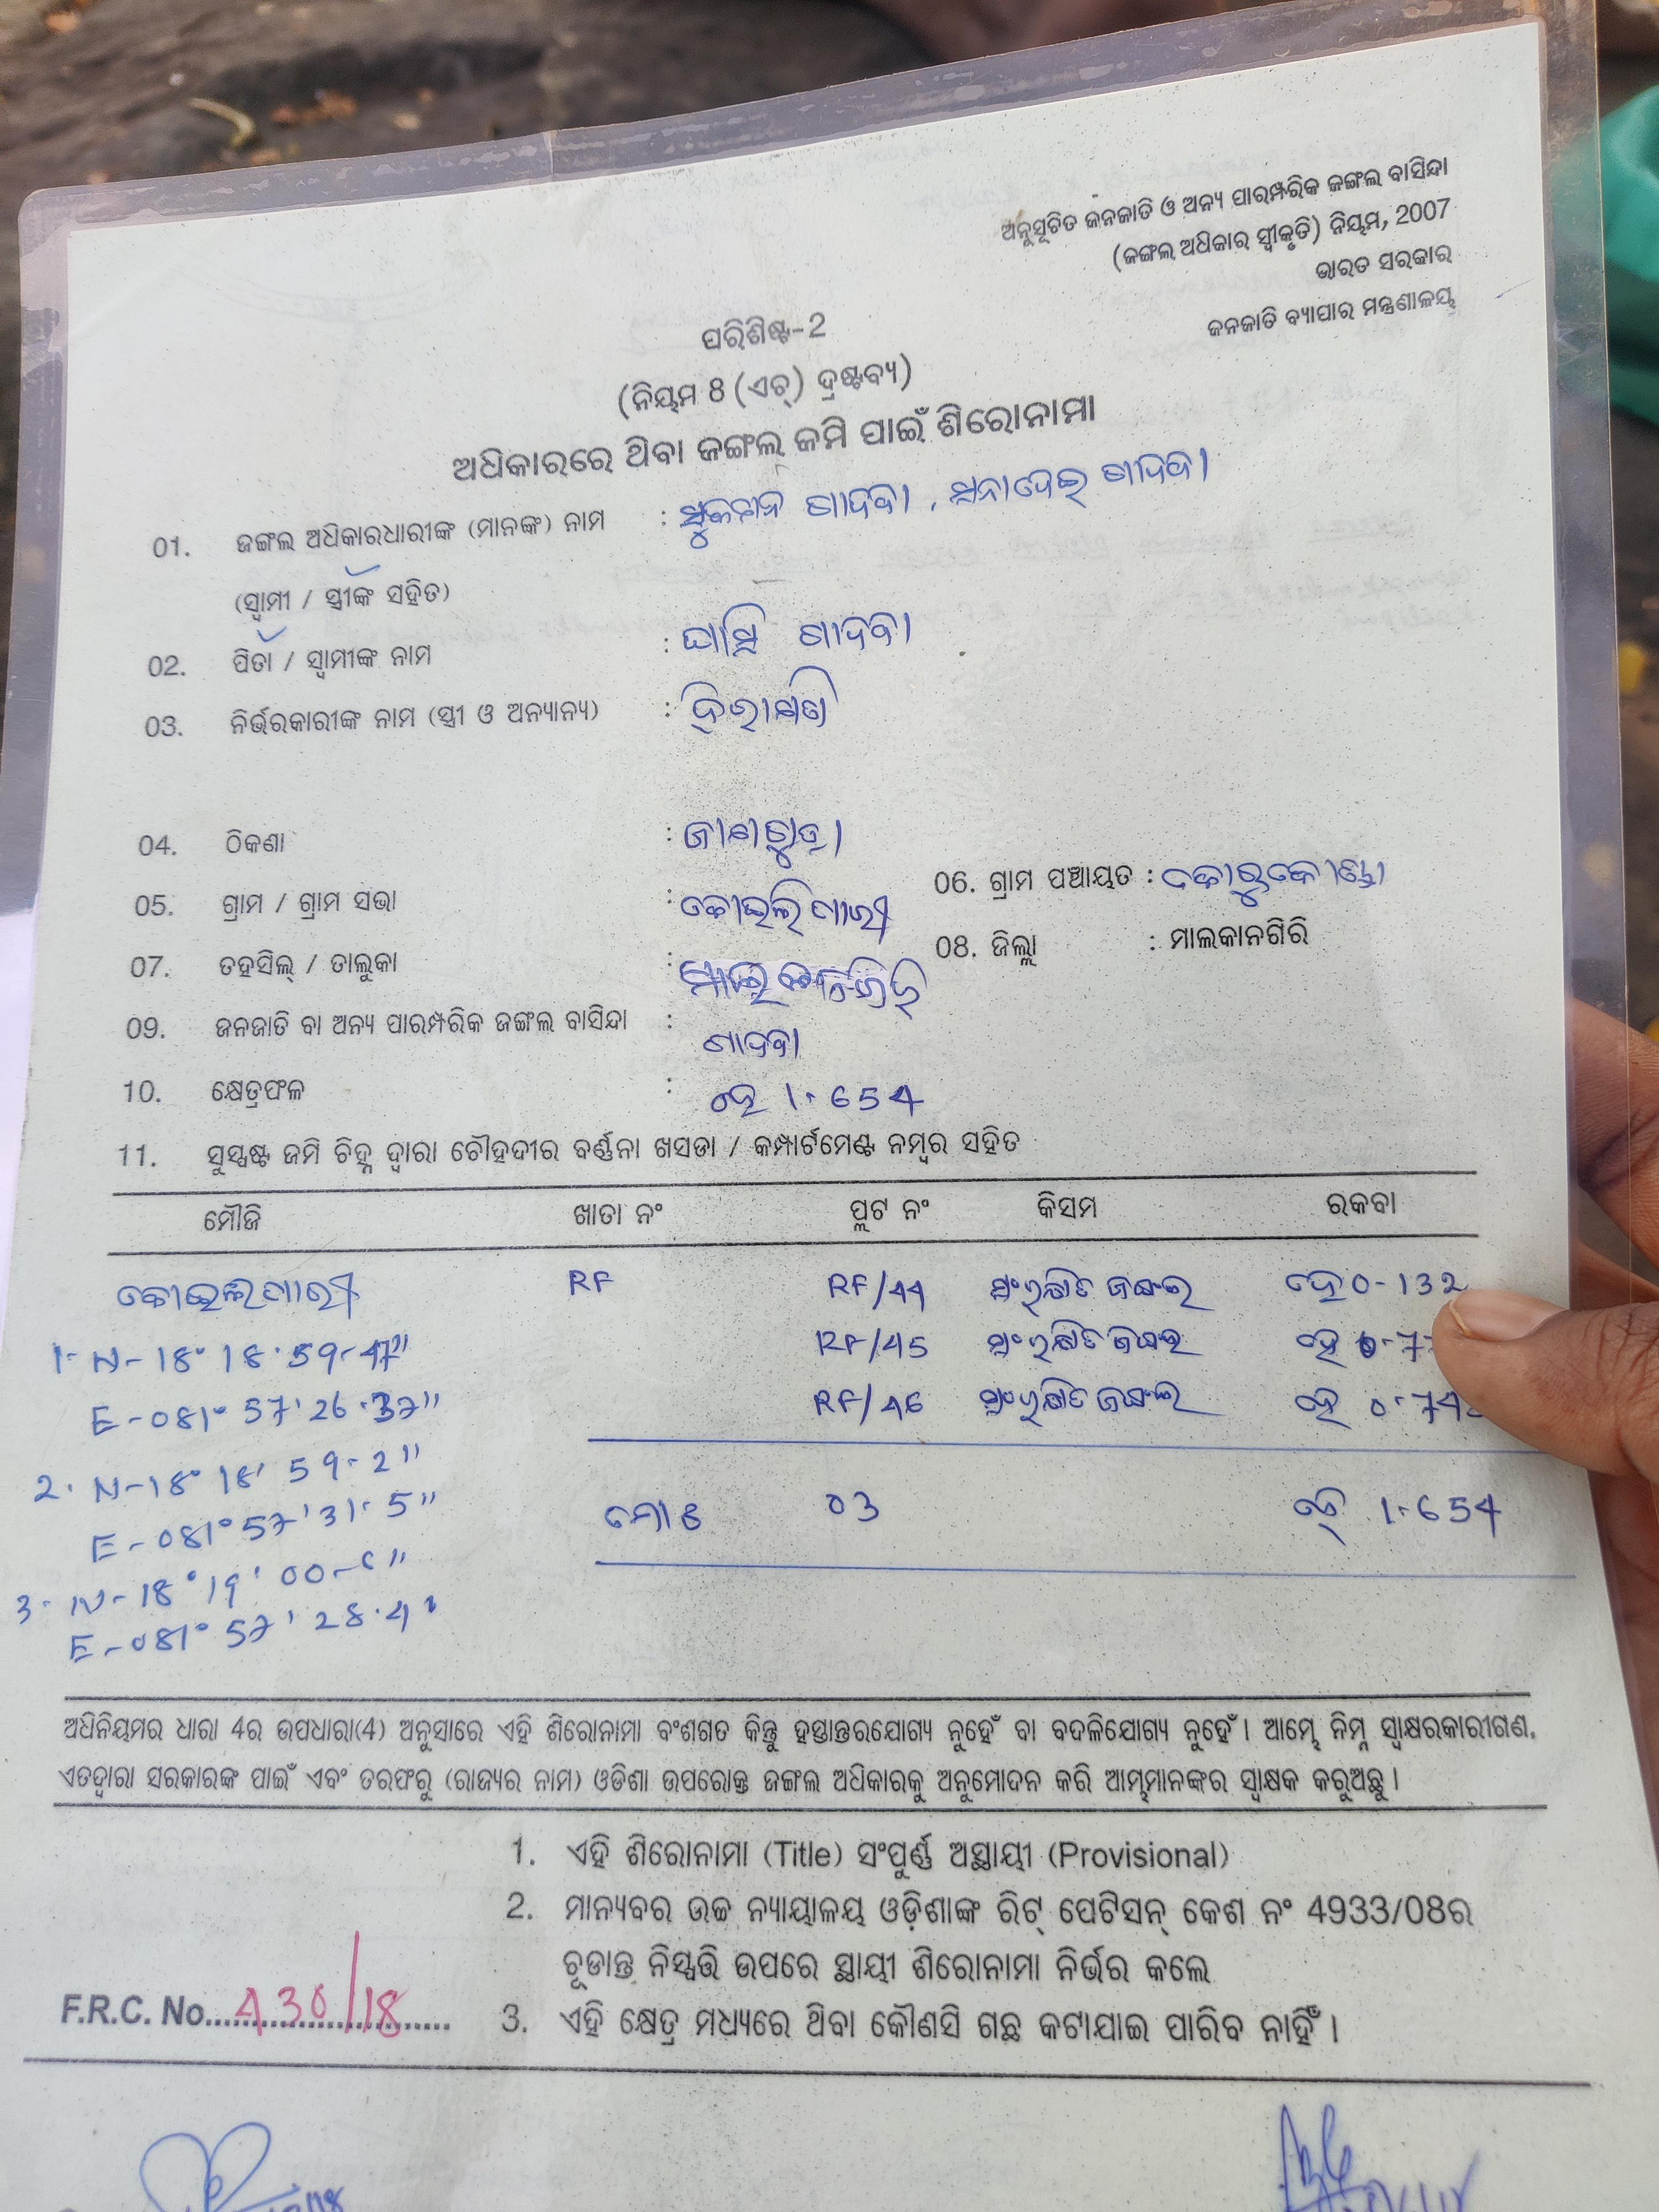 ଅନୁସୂଚିତ ଜନଜାତି ଓ ଅନ୍ୟ ପାରମ୍ପରିକ ଜଙ୍ଗଲ ବାସିନ୍ଦା
(ଜଙ୍ଗଲ ଅଧିକାର ସ୍ୱୀକୃତି) ନିୟମ, 2007
ଭାରତ ସରକାର
ଜନଜାତି ବ୍ୟାପାର ମନ୍ତ୍ରଣାଳୟ
ପରିଶିଷ୍ଟ-2
(ନିୟମ 8 (ଏଚ୍) ଦ୍ରଷ୍ଟବ୍ୟ)
ଅଧିକାରରେ ଥିବା ଜଙ୍ଗଲ ଜମି ପାଇଁ ଶିରୋନାମା
01. ଜଙ୍ଗଲ ଅଧିକାରଧାରୀଙ୍କ (ମାନଙ୍କ) ନାମ : ଗାଦବା , ଗାଦବା
(ସ୍ୱାମୀ / ସ୍ତ୍ରୀଙ୍କ ସହିତ)
02. ପିତା / ସ୍ୱାମୀଙ୍କ ନାମ : ଘାସି ଗାଦବା
03. ନିର୍ଭରକାରୀଙ୍କ ନାମ (ସ୍ତ୍ରୀ ଓ ଅନ୍ୟାନ୍ୟ) :
04. ଠିକଣା :
05. ଗ୍ରାମ / ଗ୍ରାମ ସଭା : 06. ଗ୍ରାମ ପଞ୍ଚାୟତ :
07. ତହସିଲ୍ / ତାଲୁକା : 08. ଜିଲ୍ଲା : ମାଲକାନଗିରି
09. ଜନଜାତି ବା ଅନ୍ୟ ପାରମ୍ପରିକ ଜଙ୍ଗଲ ବାସିନ୍ଦା : ଗାଦବା
10. କ୍ଷେତ୍ରଫଳ : ହେ 1.654
11. ସୁସ୍ପଷ୍ଟ ଜମି ଚିହ୍ନ ଦ୍ୱାରା ଚୌହଦୀର ବର୍ଣ୍ଣନା ଖସଡା / କମ୍ପାର୍ଟମେଣ୍ଟ ନମ୍ବର ସହିତ
ମୌଜି ଖାତା ନଂ ପ୍ଲଟ ନଂ କିସମ ରକବା
RF RF/44 ସଂରକ୍ଷିତ ଜଙ୍ଗଲ ହେ 0-132
1- N-18° 18' 59-47" RF/45 ସଂରକ୍ଷିତ ଜଙ୍ଗଲ ହେ
E-081° 57' 26.37" RF/46 ସଂରକ୍ଷିତ ଜଙ୍ଗଲ ହେ
2. N-18° 18' 59-2"
E-081° 57' 31-5" ମୋଟ 03 ହେ 1.654
3- N-18° 19' 00-6"
E-081° 57' 28.4"
ଅଧିନିୟମର ଧାରା 4ର ଉପଧାରା(4) ଅନୁସାରେ ଏହି ଶିରୋନାମା ବଂଶଗତ କିନ୍ତୁ ହସ୍ତାନ୍ତରଯୋଗ୍ୟ ନୁହେଁ ବା ବଦଳିଯୋଗ୍ୟ ନୁହେଁ । ଆମ୍ଭେ ନିମ୍ନ ସ୍ୱାକ୍ଷରକାରୀଗଣ,
ଏତଦ୍ୱାରା ସରକାରଙ୍କ ପାଇଁ ଏବଂ ତରଫରୁ (ରାଜ୍ୟର ନାମ) ଓଡିଶା ଉପରୋକ୍ତ ଜଙ୍ଗଲ ଅଧିକାରକୁ ଅନୁମୋଦନ କରି ଆମ୍ଭମାନଙ୍କର ସ୍ୱାକ୍ଷକ କରୁଅଛୁ ।
1. ଏହି ଶିରୋନାମା (Title) ସଂପୂର୍ଣ୍ଣ ଅସ୍ଥାୟୀ (Provisional)
2. ମାନ୍ୟବର ଉଚ୍ଚ ନ୍ୟାୟାଳୟ ଓଡ଼ିଶାଙ୍କ ରିଟ୍ ପେଟିସନ୍ କେଶ ନଂ 4933/08ର
ଚୂଡାନ୍ତ ନିସ୍ପତ୍ତି ଉପରେ ସ୍ଥାୟୀ ଶିରୋନାମା ନିର୍ଭର କଲେ
F.R.C. No. 430/18 3. ଏହି କ୍ଷେତ୍ର ମଧ୍ୟରେ ଥିବା କୌଣସି ଗଛ କଟାଯାଇ ପାରିବ ନାହିଁ ।